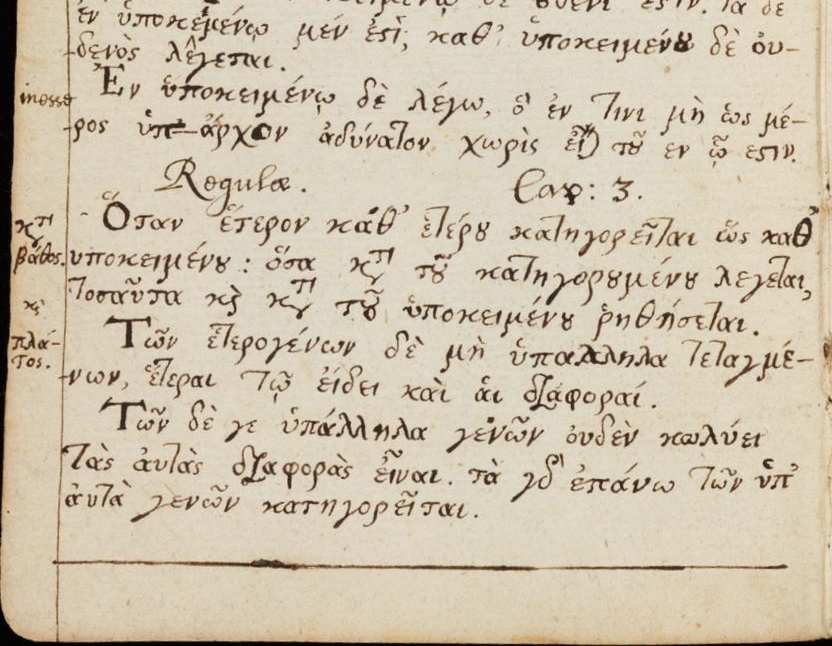 ἐν ὑποκειμένῳ μέν ἐστι, καθ' ὑποκειμένου δὲ οὐ-
δενὸς λέγεται.
inesse Ἐν ὑποκειμένῳ δὲ λέγω, ὅ ἐν τινι μὴ ὡς μέ-
ρος ὑπάρχον ἀδύνατον χωρὶς εἶναι τοῦ εν ᾧ εστιν.
Regulæ. Cap: 3.
Ὅταν ἕτερον καθ' ἑτέρου κατηγορεῖται ὡς καθ'
κτ βάθος. υποκειμένου: ὅσα κτ τοῦ κατηγορουμένου λεγεται,
τοσαῦτα κὶ κτ τοῦ ὑποκειμένου ῥηθήσεται.
κὶ πλά-
τος.
Τῶν ἑτερογένων δὲ μὴ ὑπαλληλα τεταγμέ-
νων, ἕτεραι τῷ ἐίδει κὰι ἁι διαφοραί.
Τῶν δὲ γε ὑπάλληλα γενῶν ὀυδὲν κωλύει
τὰς ἀυτὰς διαφορὰς εἶναι. τὰ γδ ἐπάνω τῶν ὑπ'
ἀυτὰ γενῶν κατηγορεῖται.